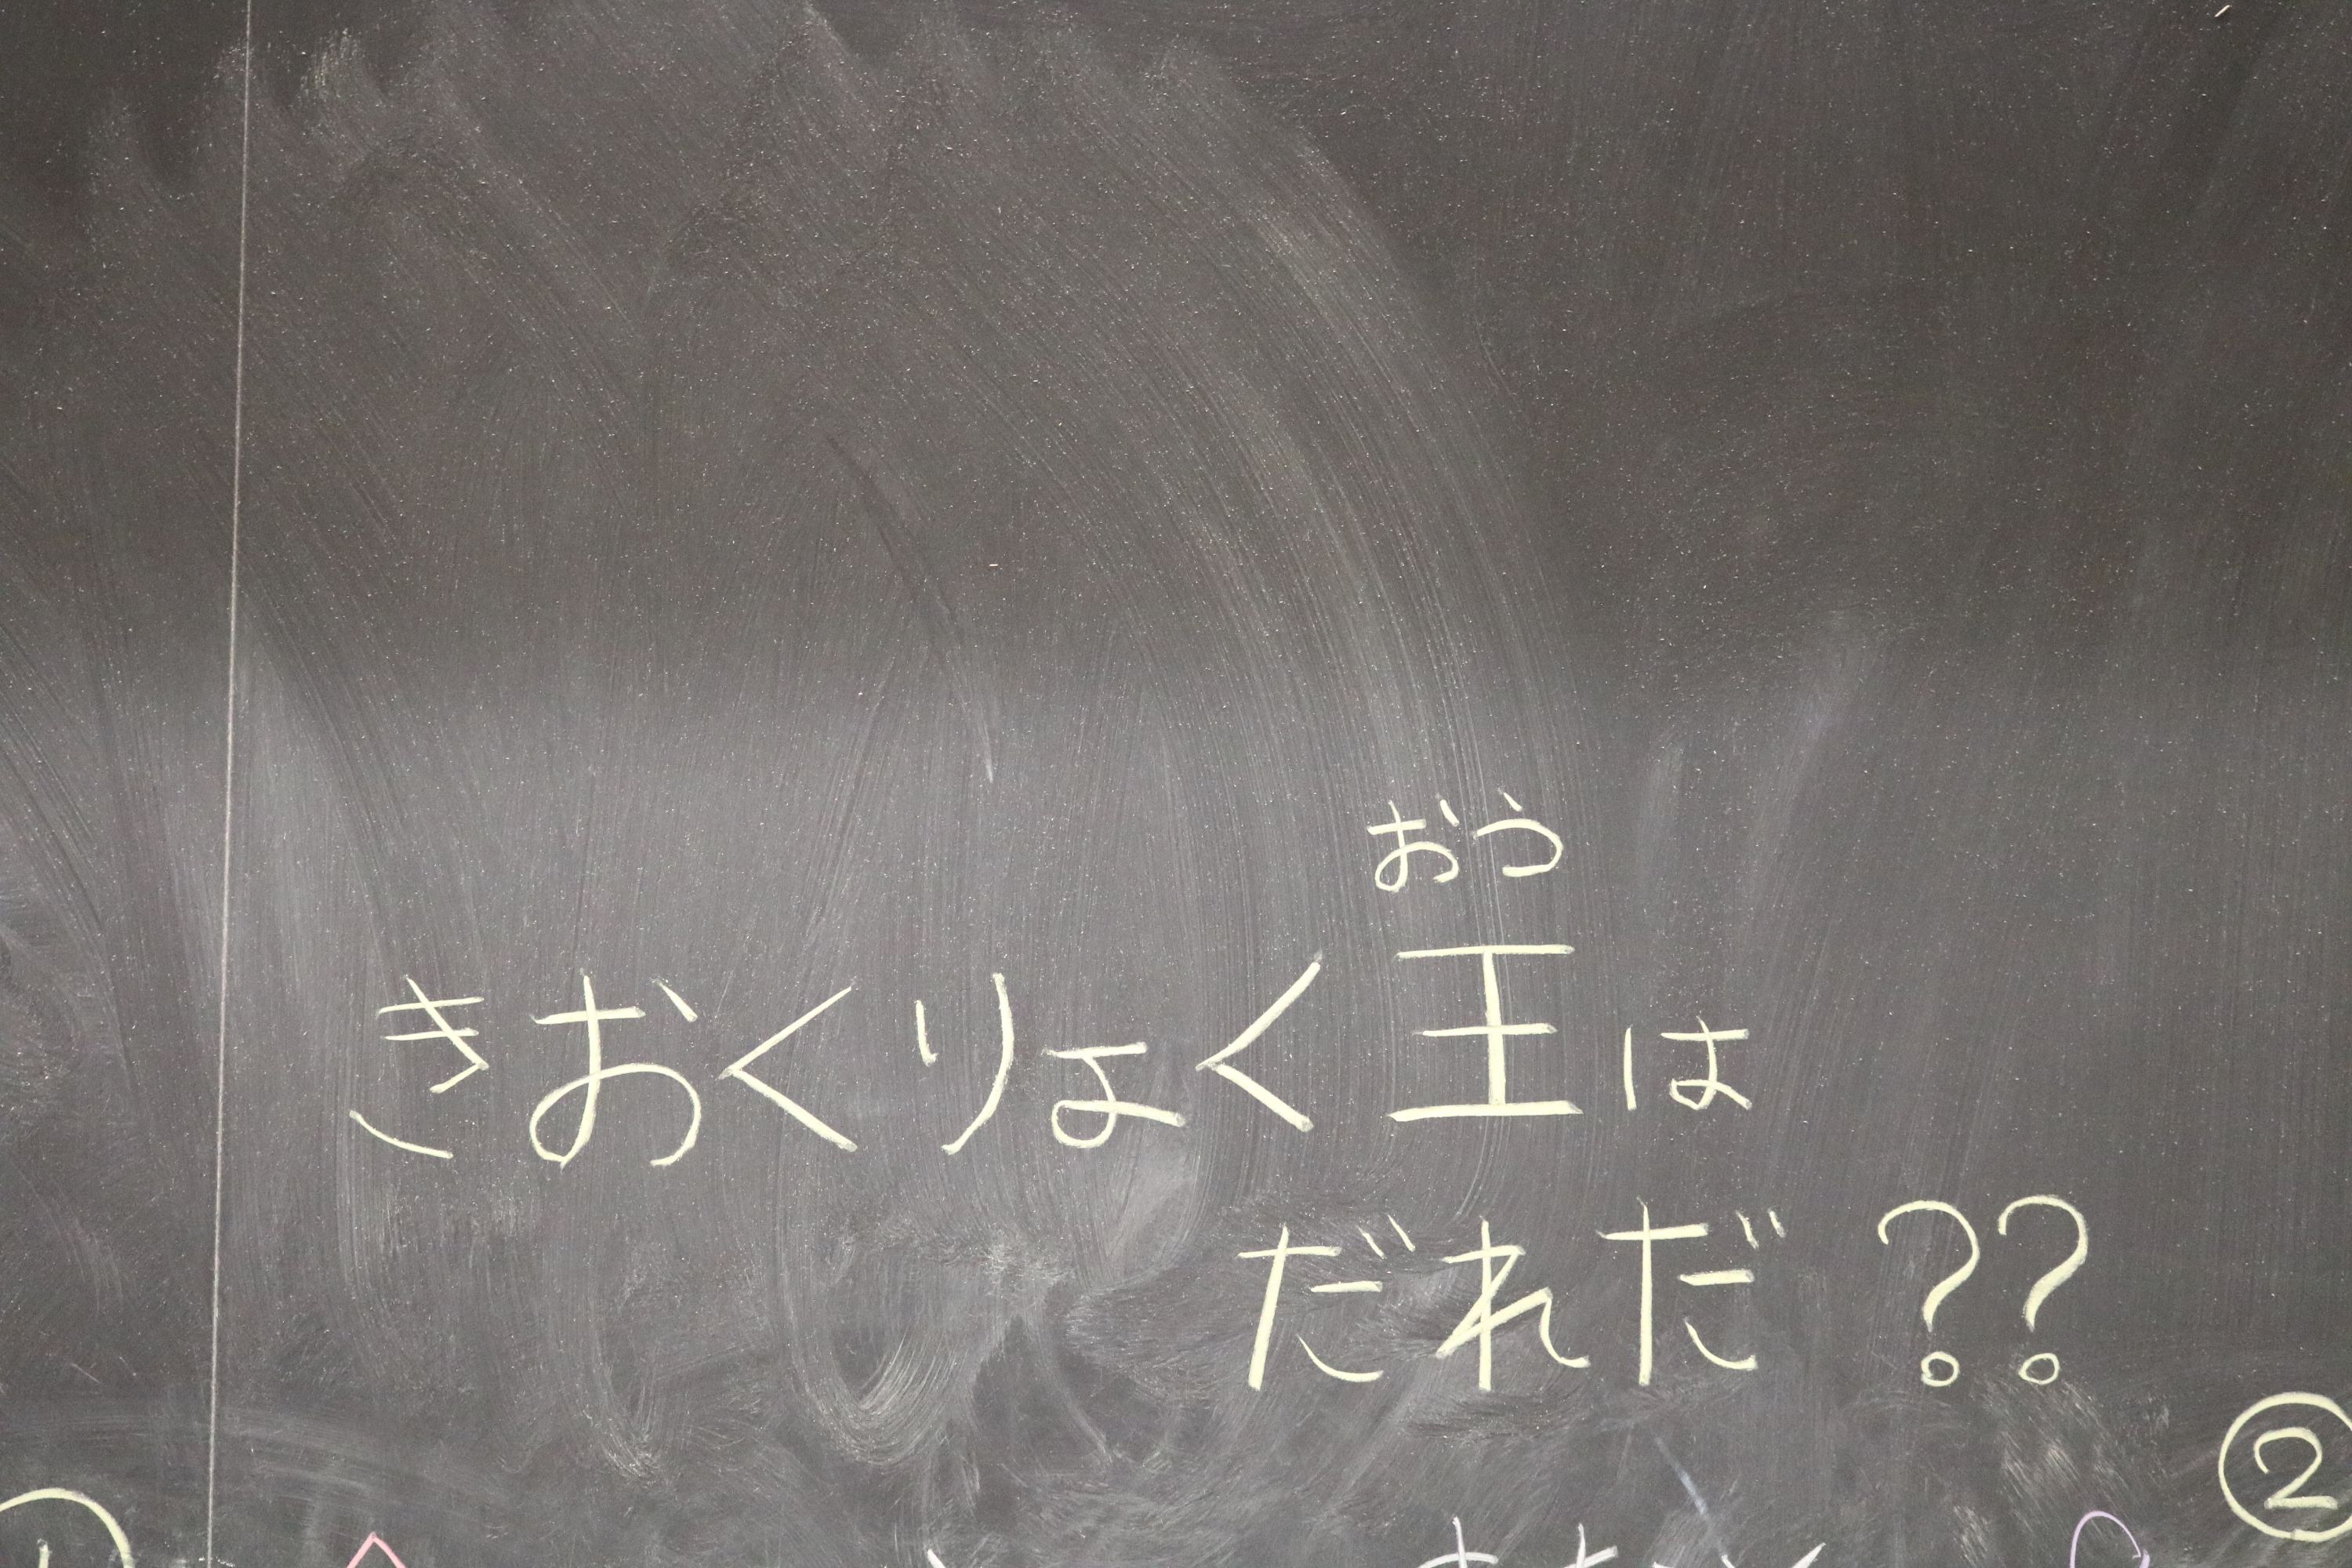 おう
きおくりょく王は
だれだ??
②